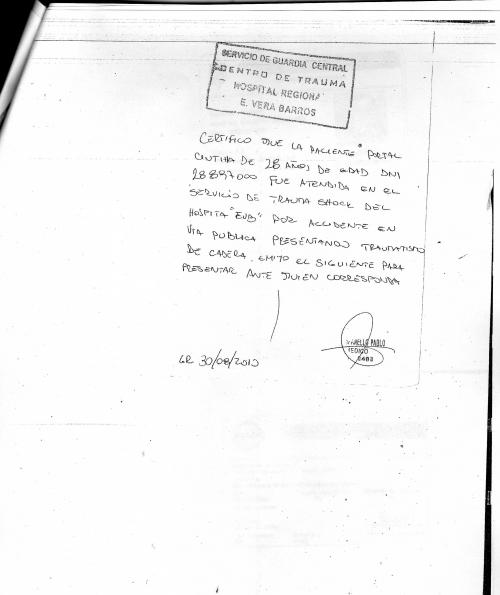 SERVICIO DE GUARDIA CENTRAL
CENTRO DE TRAUMA
HOSPITAL REGIONAL
E. VERA BARROS
CERTIFICO QUE LA PACIENTE PORTAL
CINTIHA DE 28 AÑOS DE EDAD DNI
28897000 FUE ATENDIDA EN EL
SERVICIO DE TRAUMA SHOCK DEL
HOSPITA "EVB" POR ACCIDENTE EN
VIA PUBLICA PRESENTANDO TRAUMATISMO
DE CADERA. EMITO EL SIGUIENTE PARA
PRESENTAR ANTE QUIEN CORRESPONDA
LR 30/08/2010
PABLO